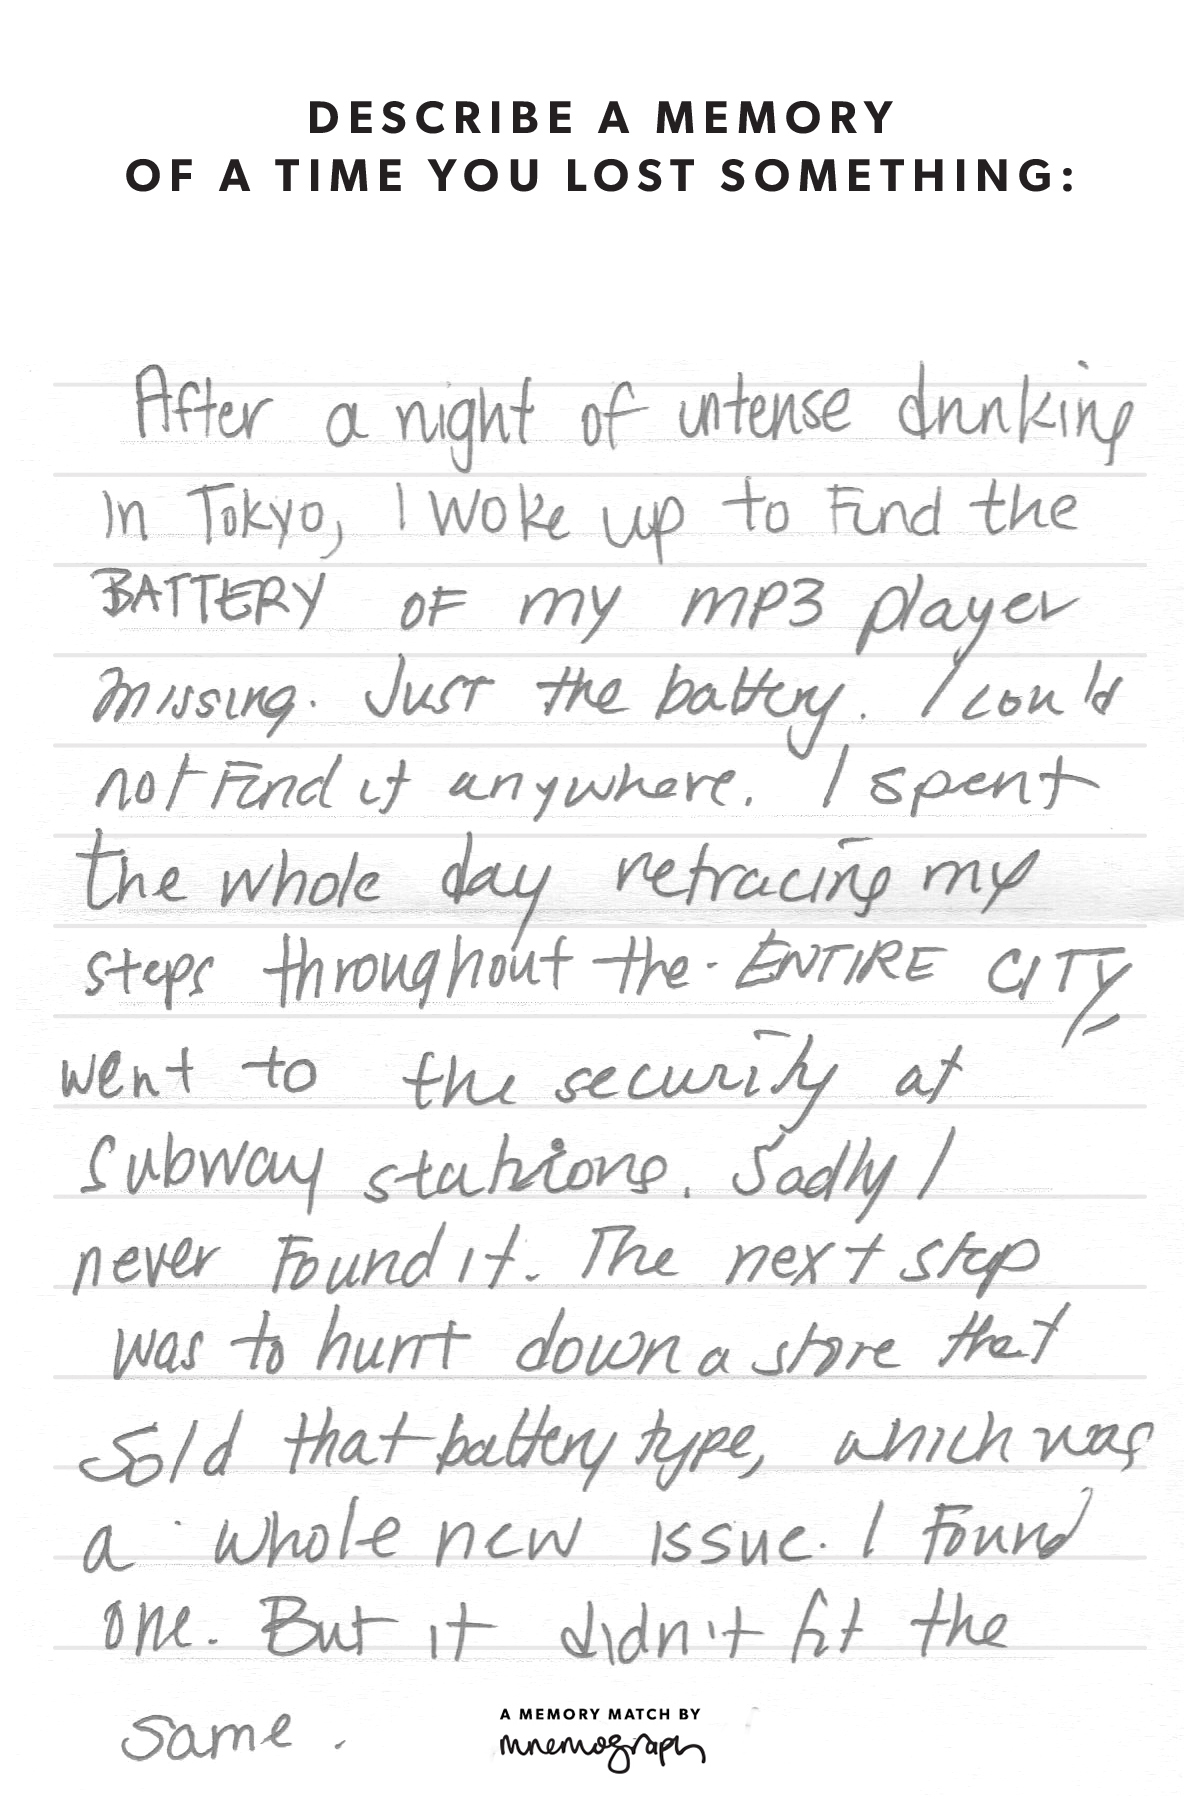 DESCRIBE A MEMORY
OF A TIME YOU LOST SOMETHING:
After a night of intense drinking
in Tokyo, I woke up to find the
BATTERY OF my MP3 player
missing. Just the battery. I could
not find it anywhere. I spent
the whole day retracing my
steps throughout the ENTIRE CITY,
went to the security at
subway stations. Sadly I
never found it. The next step
was to hunt down a store that
sold that battery type, which was
a whole new issue. I found
one. But it didn't fit the
same.
A MEMORY MATCH BY
mnemograph